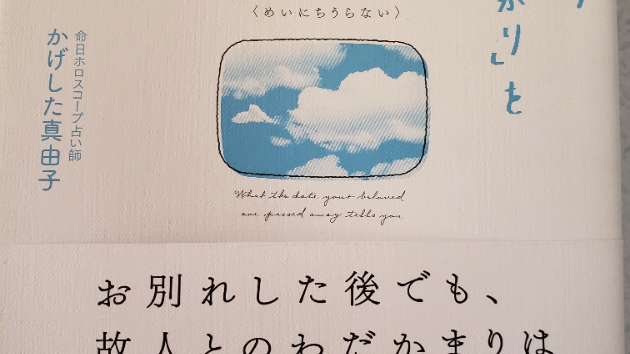 り」を
〈めいにちうらない〉
命日ホロスコープ占い師
かげした真由子
What the date your beloved
one passed away tells you
お別れした後でも、
故人とのわだかまりは